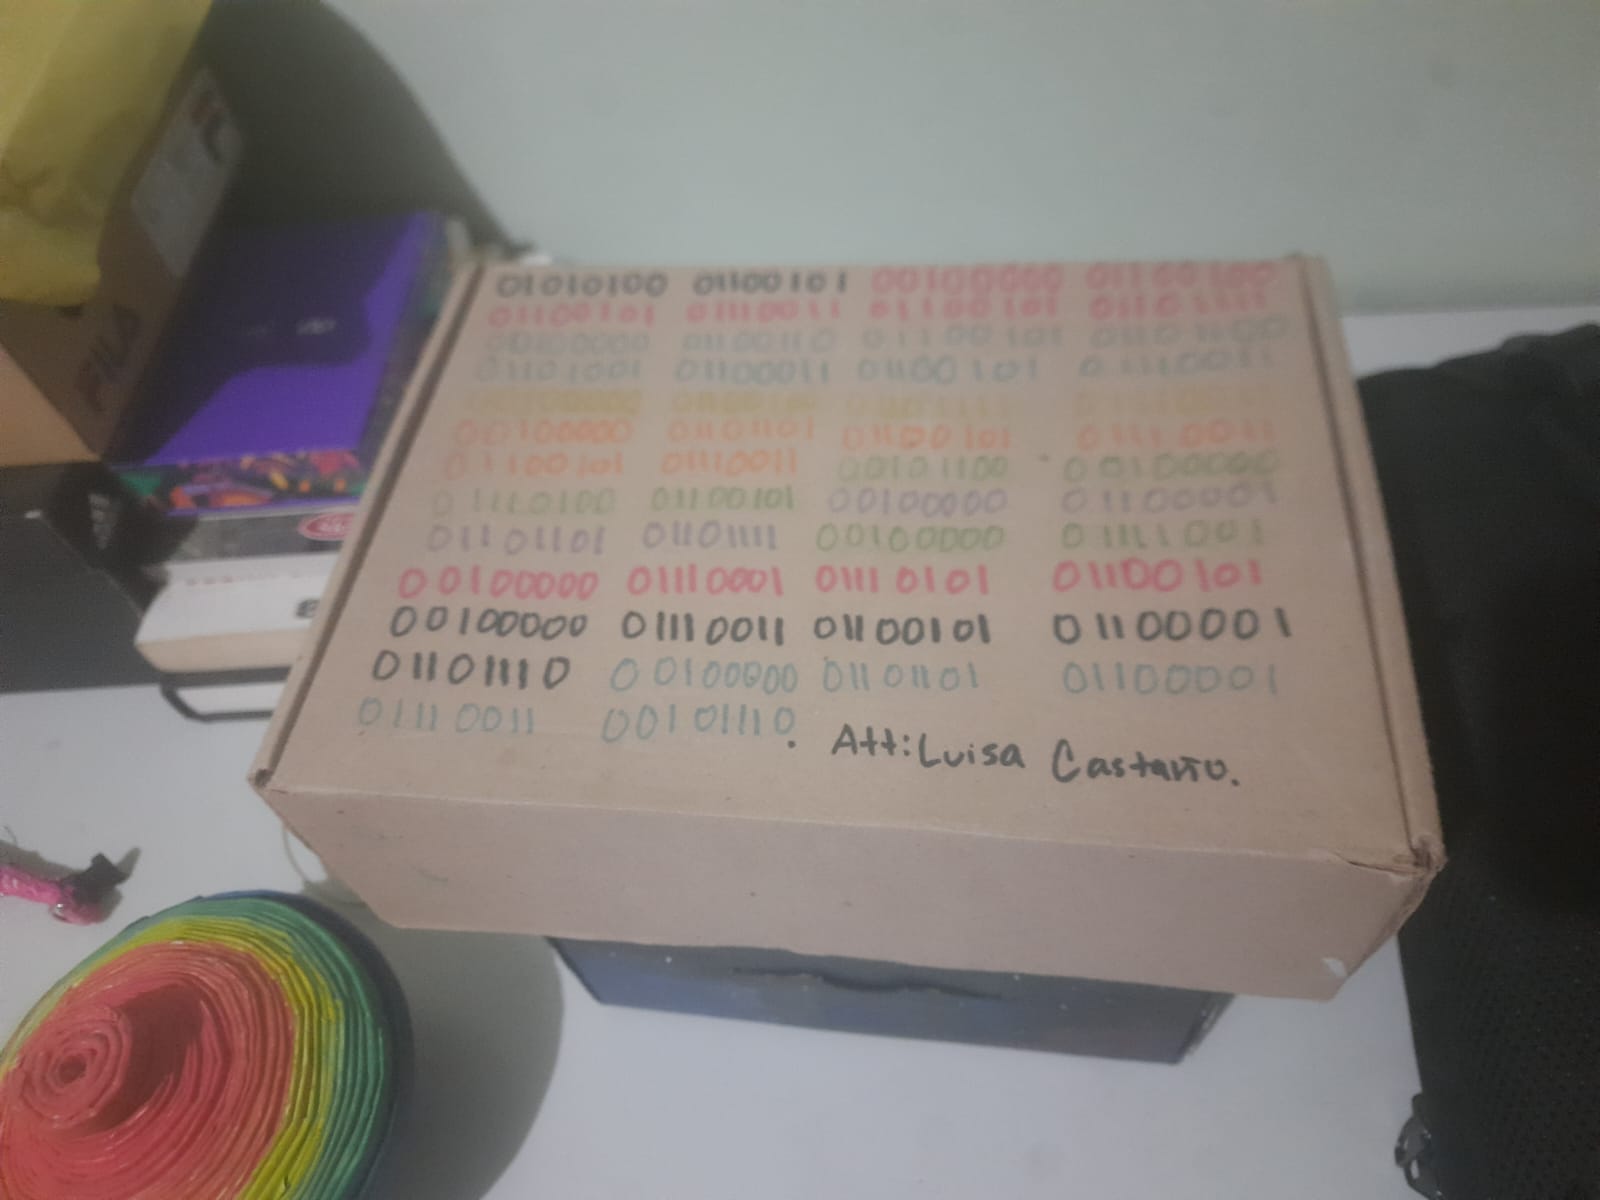 FILA
01010100 01100101 00100000 01100100
01100101 01110011 01100101 01101111
00100000 01100110 01100101 01101100
01101001 01100011 01100101 01110011
00100000 01100100 01101111 01110011
00100000 01101101 01100101 01110011
01100101 01110011 00101100 00100000
01110100 01100101 00100000 01100001
01101101 01101111 00100000 01111001
00100000 01110001 01110101 01100101
00100000 01110011 01100101 01100001
01101110 00100000 01101101 01100001
01110011 00101110. Att: Luisa Castaño.